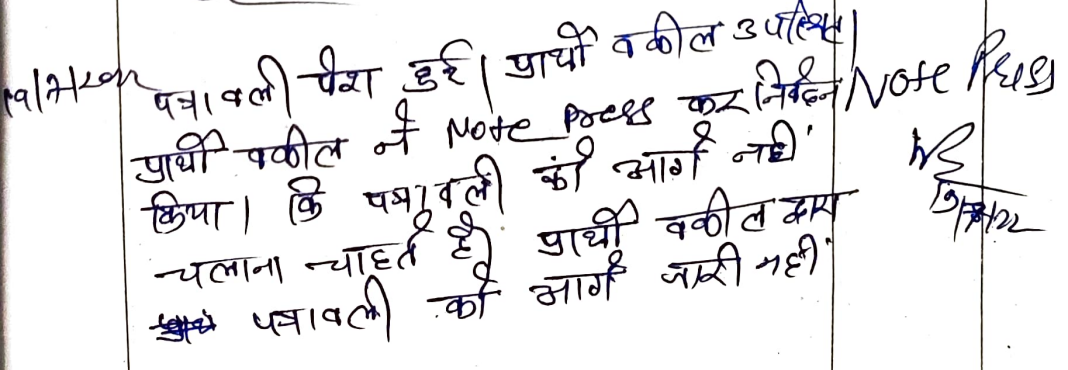 पत्रावली पेश हुई। प्रार्थी वकील उपस्थित।
प्रार्थी वकील ने Note Press कर निवेदन
किया। कि पत्रावली को आगे नहीं
चलाना चाहते है। प्रार्थी वकील द्वारा
पत्रावली को आगे जारी नहीं
Note Press